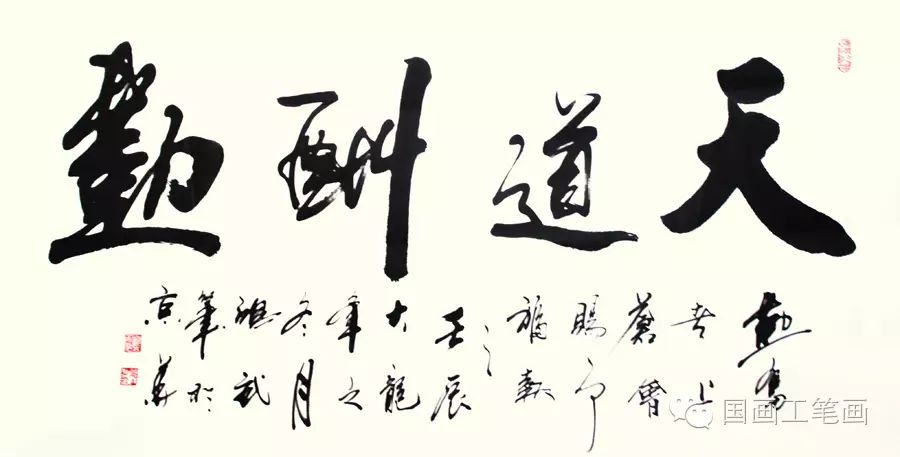 天道酬勤
勤奮
者上
蒼會
賜予
福報
壬辰
大龍
年之
冬月
武
筆於
京華
国画工笔画